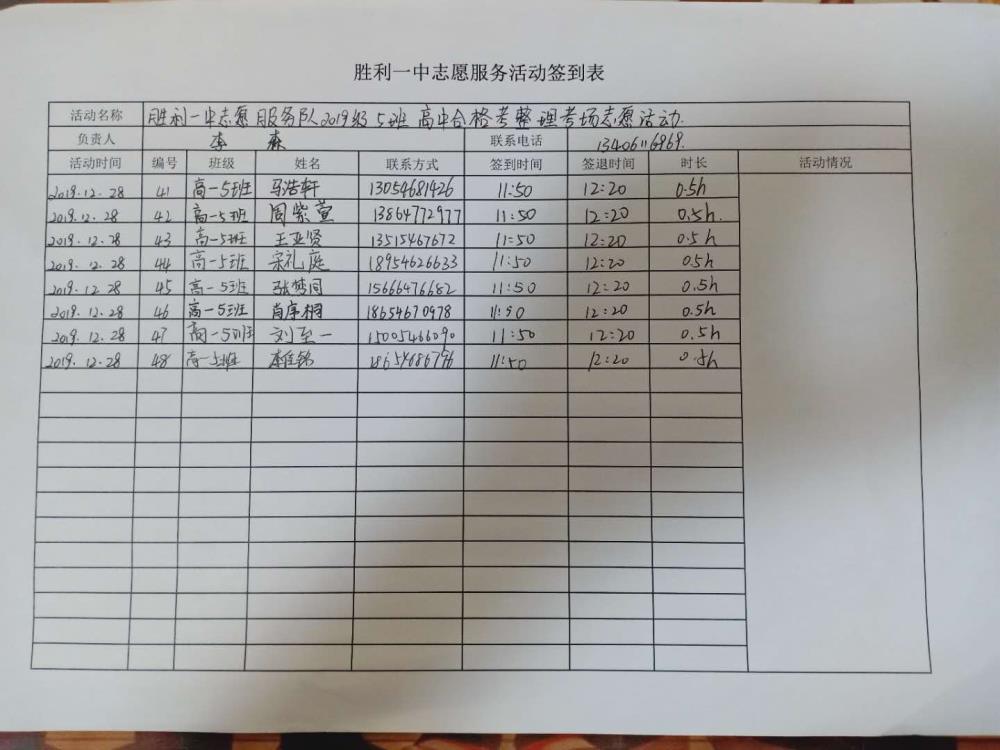 胜利一中志愿服务活动签到表
活动名称 胜利一中志愿服务队2019级5班 高中合格考整理考场志愿活动
负责人 李 森 联系电话 13406116969.
活动时间 编号 班级 姓名 联系方式 签到时间 签退时间 时长 活动情况
2019.12.28 41 高一5班 马浩轩 13054681426 11:50 12:20 0.5h
2019.12.28 42 高一5班 周紫萱 13864772977 11:50 12:20 0.5h.
2019.12.28 43 高一5班 王亚贤 13515467672 11:50 12:20 0.5h
2019.12.28 44 高一5班 宗礼庭 18954626633 11:50 12:20 0.5h
2019.12.28 45 高一5班 张梦同 15666476682 11:50 12:20 0.5h
2019.12.28 46 高一5班 肖序桐 18654670978 11:50 12:20 0.5h
2019.12.28 47 高一5班 刘至一 15005466090 11:50 12:20 0.5h
2019.12.28 48 高一5班 18654686796 11:50 12:20 0.5h